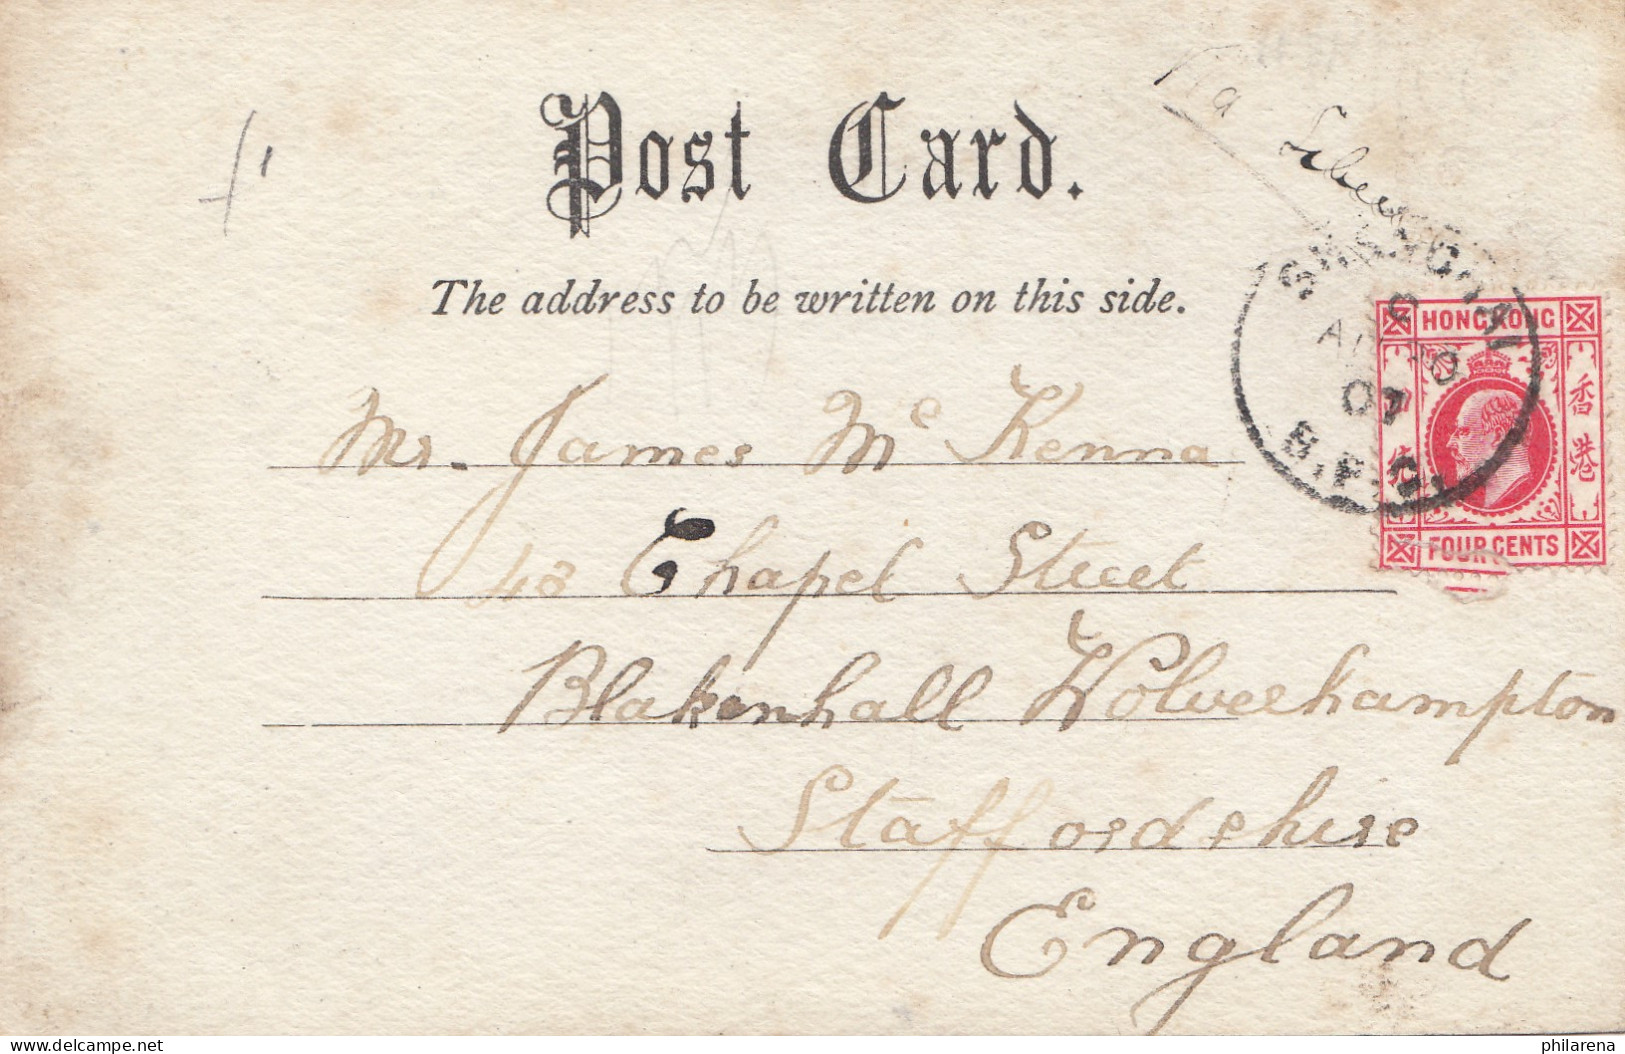 Via Siberia
Post Card.
The address to be written on this side.
SHANGHAI
C
07
B.P.O.
HONG KONG
香港
FOUR CENTS
Mr. James Mc Kenna
48 Chapel Street
Blakenhall Wolverhampton
Staffordshire
England
delcampe.net
philarena